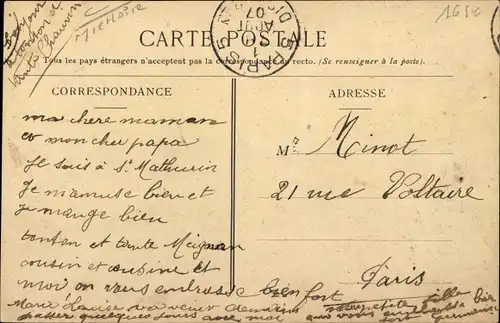 CARTE POSTALE
Tous les pays étrangers n'acceptent pas la correspondance au recto. (Se renseigner à la poste).
CORRESPONDANCE
ma chere maman
et mon cher papa
Je suis à St Mathurin
Je m'amuse bien et
Je mange bien
tonton et tante Meignan
cousin et cousine et
moi on vous embrasse bien fort
Marie Louise va venir
passer quelques jours avec moi
ADRESSE
Mr Minot
21 rue Voltaire
Paris
petite fille
qui vous embrasse bien
fort Germaine
PARIS
07